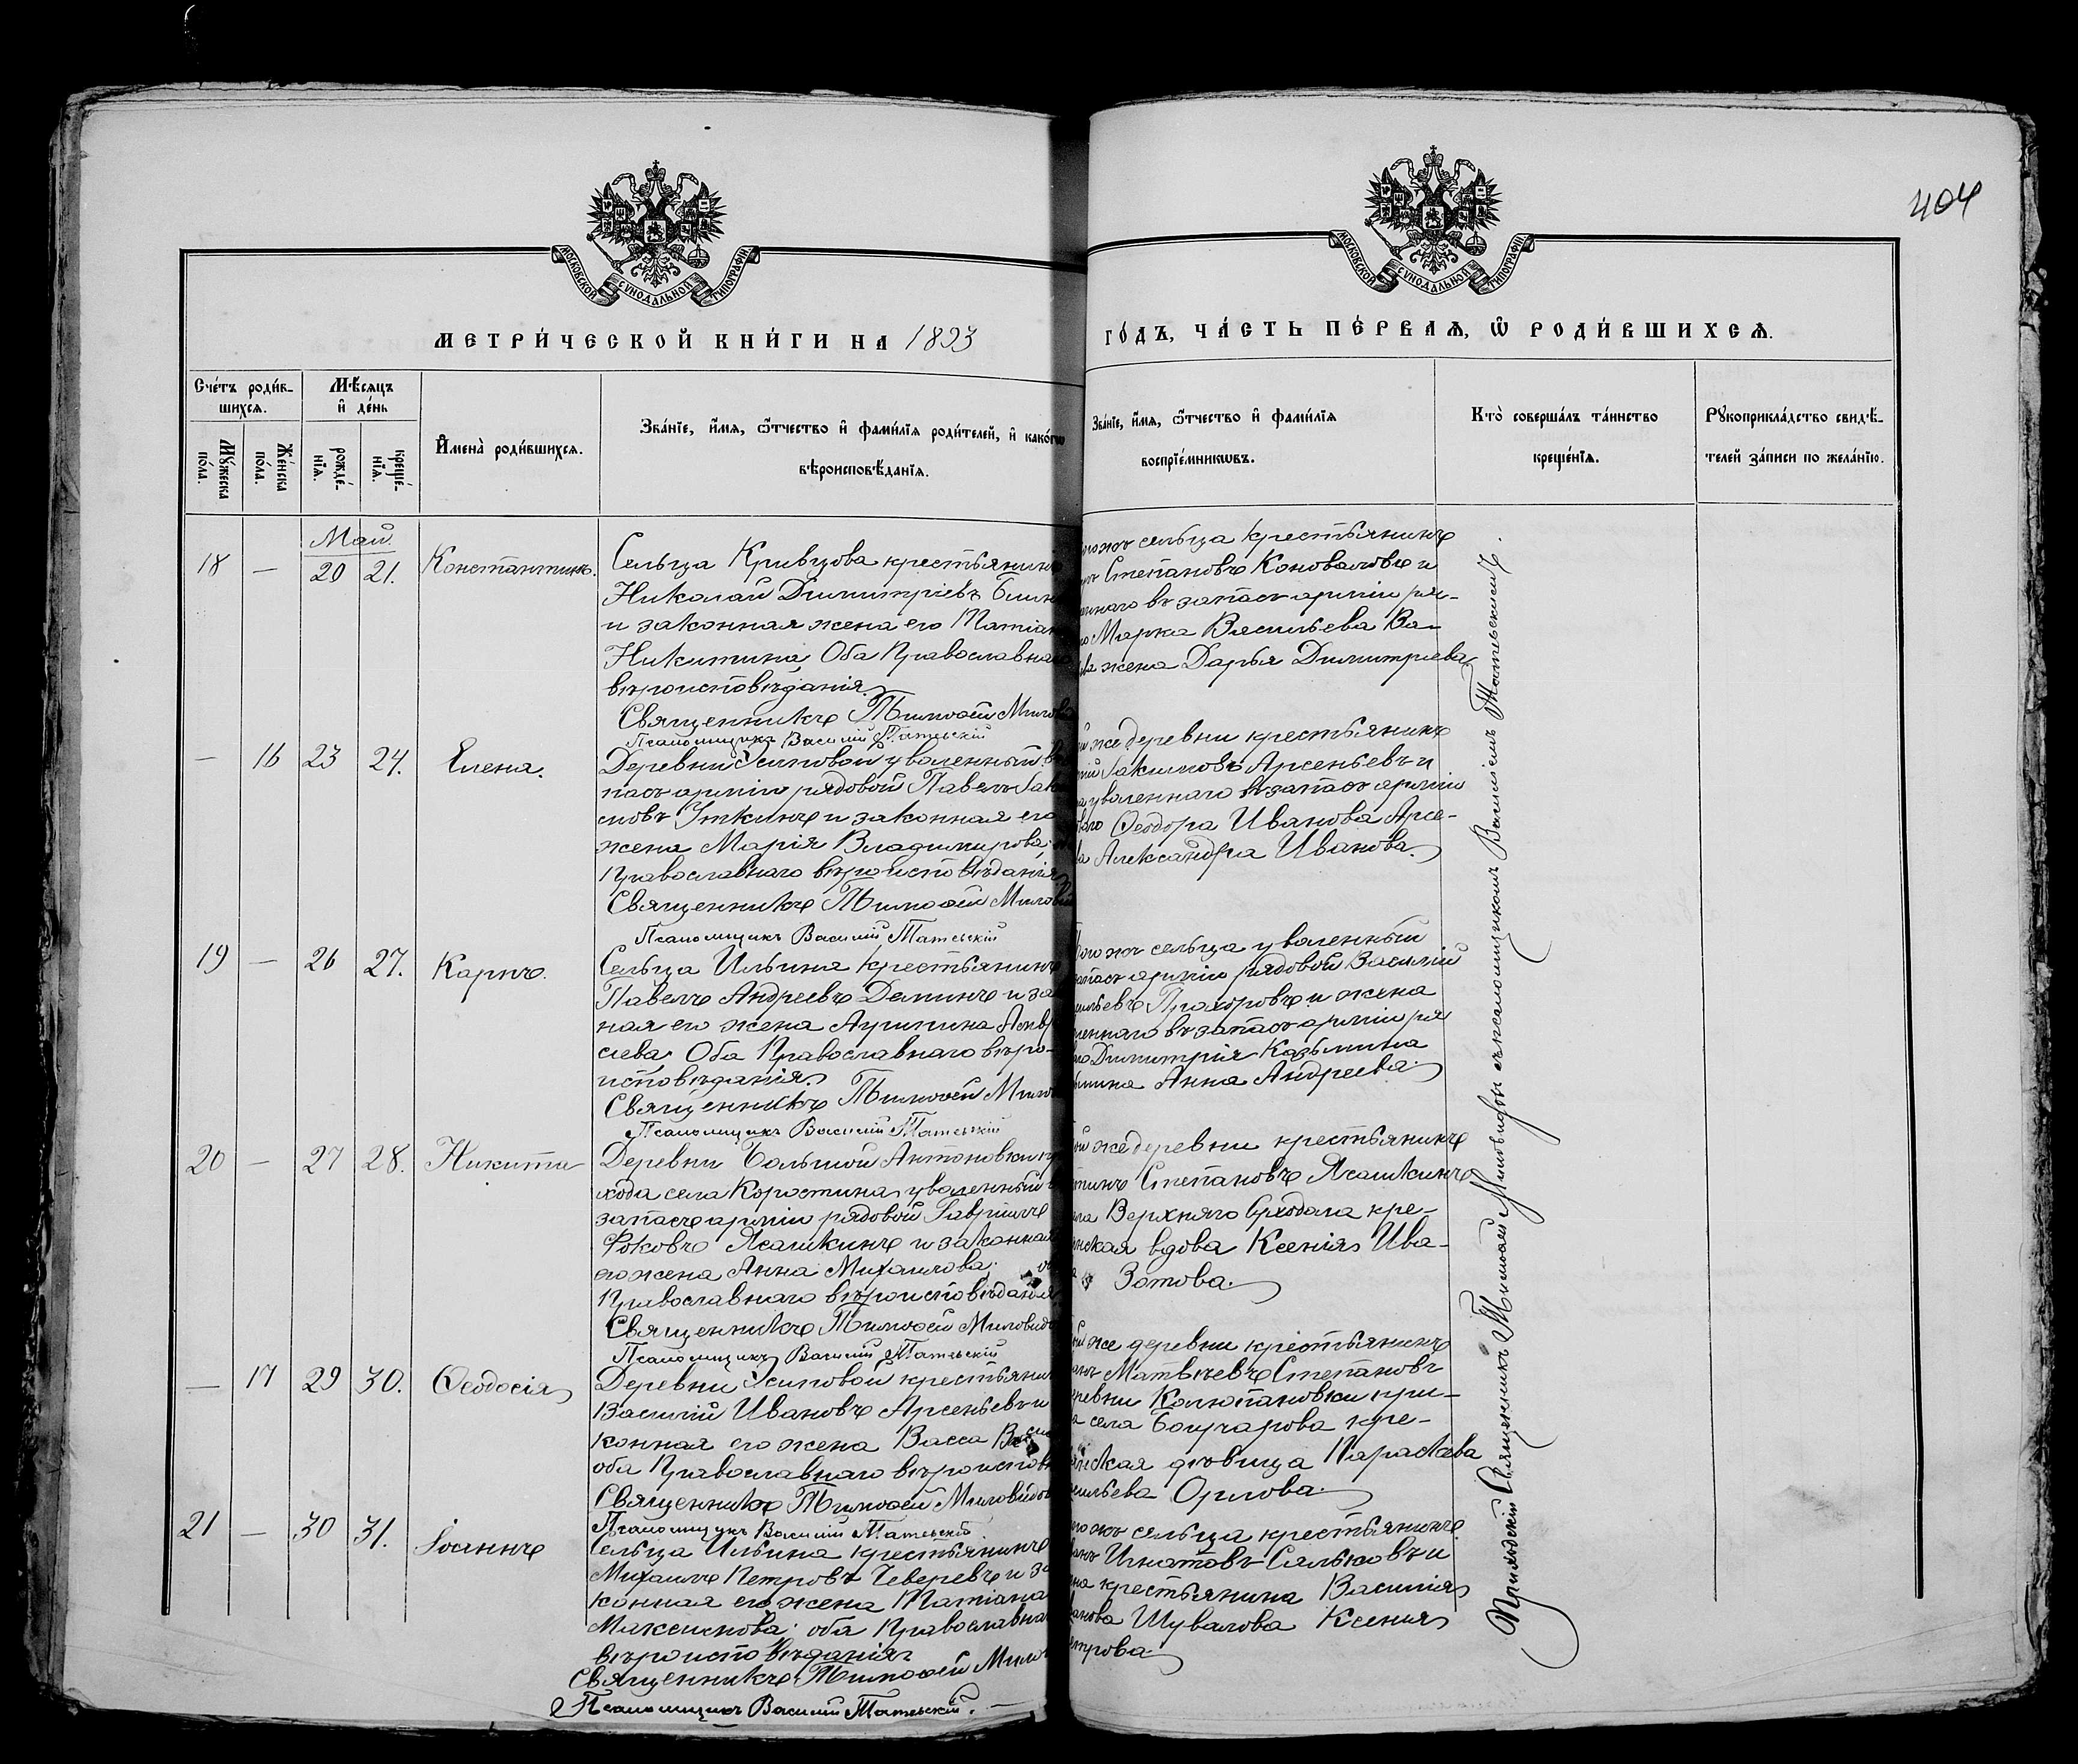 404
МОСКОВСКОЙ СѴНОДАЛЬНОЙ ТИПОГРАФІИ
МОСКОВСКОЙ СѴНОДАЛЬНОЙ ТИПОГРАФІИ
МЕТРИ́ЧЕСКОЙ КНИ́ГИ НА 1893
ГО́ДЪ, ЧА́СТЬ ПЕ́РВАЯ, Ѿ РОДИ́ВШИХСЯ.
Сче́тъ роди́в-
шихся.
Мꙋ́жеска по́ла.
Же́нска по́ла.
Мѣ́сяцъ и де́нь
рожде́-нія.
креще́-нія.
Имена̀ роди́вшихся.
Зва́ніе, и́мя, ѻ́тчество и фами́лія роди́телей, и како́гѡ
вѣроисповѣ́данія.
Зва́ніе, и́мя, ѻ́тчество и фами́лія
воспріе́мникѡвъ.
Кто̀ соверша́лъ та́инство
креще́нія.
Рꙋкоприкла́дство свидѣ́-
телей за́писи по жела́нію.
Май.
18 — 20 21. Константинъ.
Сельца Кривцова крестьянинъ
Николай Димитріевъ
и законная жена его
Никитина, Оба Православнаго
вѣроисповѣданія
Священникъ Тимоѳей
Псаломщикъ Василій Татевскій
сельца крестьянинъ
Степановъ Коноваловъ и
въ запасъ арміи ря-
Марка Васильева Ва-
жена Дарья Димитріева
— 16 23 24. Елена.
Деревни Осиповой уволенный въ
пасъ арміи рядовой Павелъ Іаки
мовъ Уткинъ и законная его
жена Марія Владимирова;
Православнаго вѣроисповѣданія
Священникъ Тимоѳей
Псаломщикъ Василій Татевскій
же деревни крестьянинъ
Іакимовъ Арсеньевъ и
уволеннаго въ запасъ арміи
Ѳеодора Иванова Арсе-
Александра Иванова
19 — 26 27. Карпъ.
Сельца Ильина крестьянинъ
Павелъ Андреевъ Деминъ и за
ная его жена
Оба Православнаго вѣро-
исповѣданія
Священникъ Тимоѳей
Псаломщикъ Василій Татевскій
сельца уволенный
арміи рядовой Василій
Прохоровъ и жена
въ запасъ арміи ря
Димитрія Казьмина
Анна Андреева
20 — 27 28. Никита
Деревни Большой Антоновки
хода села Коростина уволенный
запасъ арміи рядовой Гавріилъ
Фоковъ Ясашкинъ и законная
его жена Анна Михаилова;
Православнаго вѣроисповѣданія
Священникъ Тимоѳей Миловидовъ
Псаломщикъ Василій Татевскій
же деревни крестьянинъ
Степановъ Ясашкинъ
Верхняго кре-
вдова Ксенія Ива-
Зотова.
— 17 29 30. Ѳеодосія
Деревни Осиповой крестьянинъ
Василій Ивановъ Арсеньевъ и
конная его жена Васса
оба Православнаго
Священникъ Тимоѳей Миловидовъ
Псаломщикъ Василій Татевскій
же деревни крестьянинъ
Матвѣевъ Степановъ
Колюпановки при-
села Бончарова кре-
дѣвица Параскева
Орлова.
21 — 30 31. Іоаннъ
Сельца Ильина крестьянинъ
Михаилъ Петровъ Чеверевъ и за
конная его жена
Максимова; оба Православнаго
вѣроисповѣданія
Священникъ Тимоѳей
Псаломщикъ Василій Татевскій.
сельца крестьянинъ
Игнатовъ Сальковъ и
крестьянина Василія
Шувалова Ксенія
Приходскій Священникъ Тимоѳей Миловидовъ съ псаломщикомъ Василіемъ Татевскимъ.